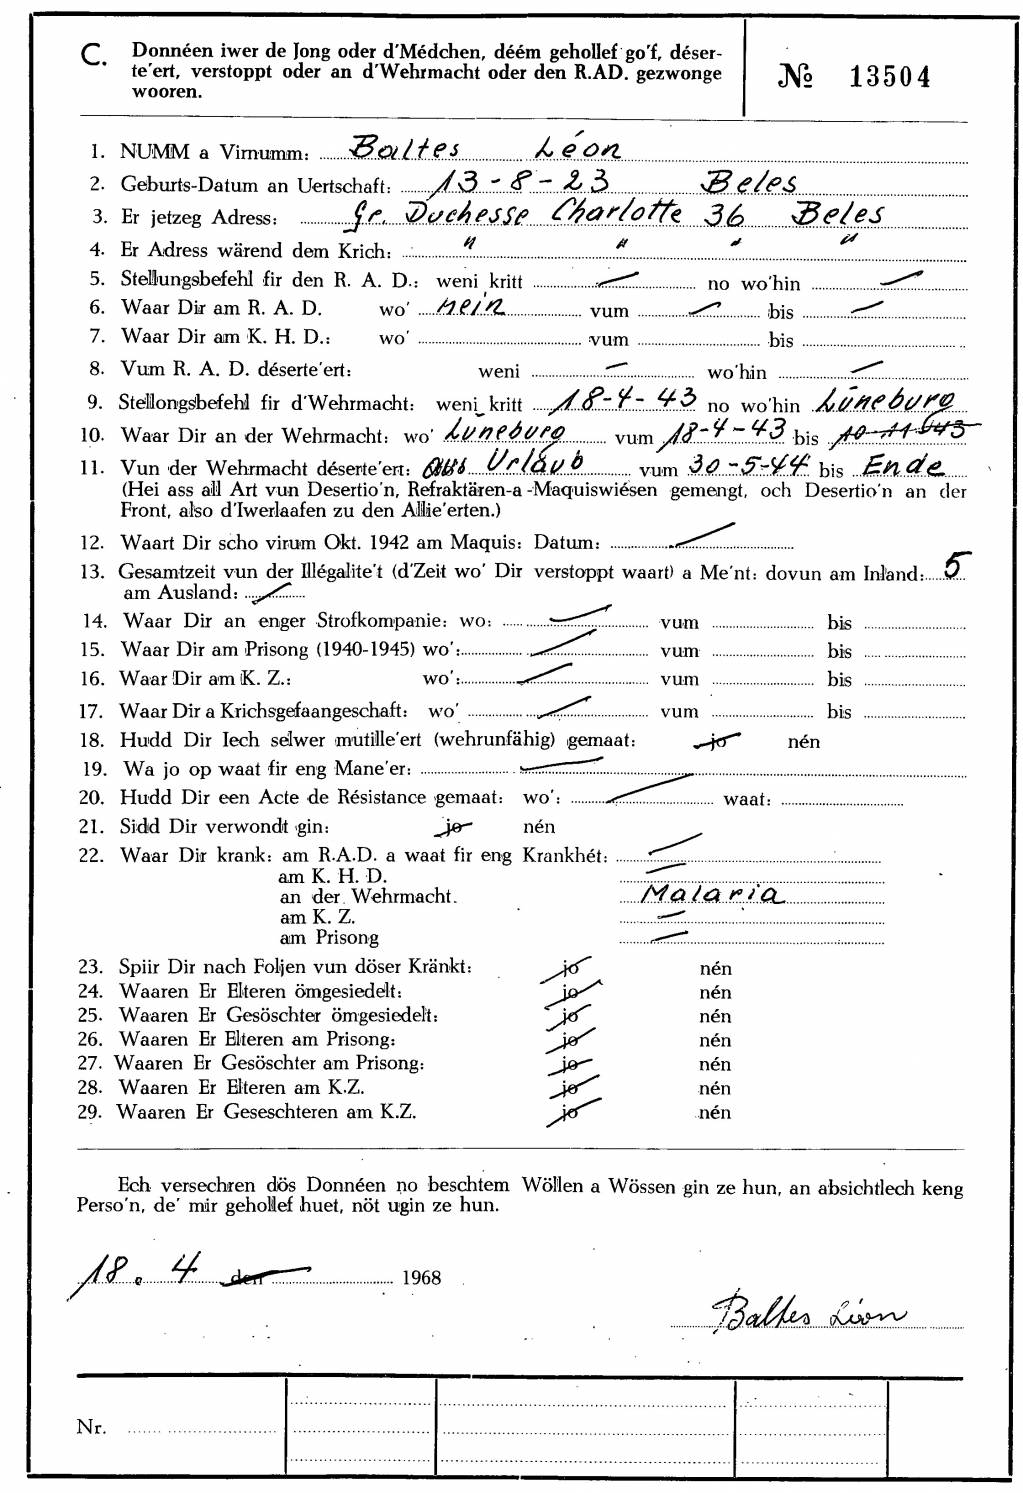 C. Donnéen iwer de Jong oder d'Médchen, déém gehollef go'f, déser-
te'ert, verstoppt oder an d'Wehrmacht oder den R.AD. gezwonge
wooren.
№ 13504
1. NUMM a Virnumm: Baltes Léon
2. Geburts-Datum an Uertschaft: 13-8-23 Beles
3. Er jetzeg Adress: Gr. Duchesse Charlotte 36 Beles
4. Er Adress wärend dem Krich: " " " "
5. Stellungsbefehl fir den R. A. D.: weni kritt — no wo'hin —
6. Waar Dir am R. A. D. wo' nein vum — bis —
7. Waar Dir am K. H. D.: wo' vum bis
8. Vum R. A. D. déserte'ert: weni — wo'hin —
9. Stellongsbefehl fir d'Wehrmacht: weni kritt 18-4-43 no wo'hin Lüneburg
10. Waar Dir an der Wehrmacht: wo' Lüneburg vum 18-4-43 bis
11. Vun der Wehrmacht déserte'ert: aus Urlaub vum 30-5-44 bis Ende
(Hei ass all Art vun Desertio'n, Refraktären-a-Maquiswiésen gemengt, och Desertio'n an der
Front, also d'Iwerlaafen zu den Allie'erten.)
12. Waart Dir scho virum Okt. 1942 am Maquis: Datum: —
13. Gesamtzeit vun der Illégalite't (d'Zeit wo' Dir verstoppt waart) a Me'nt: dovun am Inland: 5
am Ausland: —
14. Waar Dir an enger Strofkompanie: wo: — vum bis
15. Waar Dir am Prisong (1940-1945) wo': — vum bis
16. Waar Dir am K. Z.: wo': — vum bis
17. Waar Dir a Krichsgefaangeschaft: wo' — vum bis
18. Hudd Dir Iech selwer mutille'ert (wehrunfähig) gemaat: jo nén
19. Wa jo op waat fir eng Mane'er: —
20. Hudd Dir een Acte de Résistance gemaat: wo': — waat:
21. Sidd Dir verwondt gin: jo nén
22. Waar Dir krank: am R.A.D. a waat fir eng Krankhét: —
am K. H. D. —
an der Wehrmacht. Malaria
am K. Z. —
am Prisong —
23. Spiir Dir nach Foljen vun döser Kränkt: jo nén
24. Waaren Er Elteren ömgesiedelt: jo nén
25. Waaren Er Gesöschter ömgesiedelt: jo nén
26. Waaren Er Elteren am Prisong: jo nén
27. Waaren Er Gesöschter am Prisong: jo nén
28. Waaren Er Elteren am K.Z. jo nén
29. Waaren Er Geseschteren am K.Z. jo nén
Ech versechren dös Donnéen no beschtem Wöllen a Wössen gin ze hun, an absichtlech keng
Perso'n, de' mir gehollef huet, nöt ugin ze hun.
18. 4 den 1968
Baltes Léon
Nr.